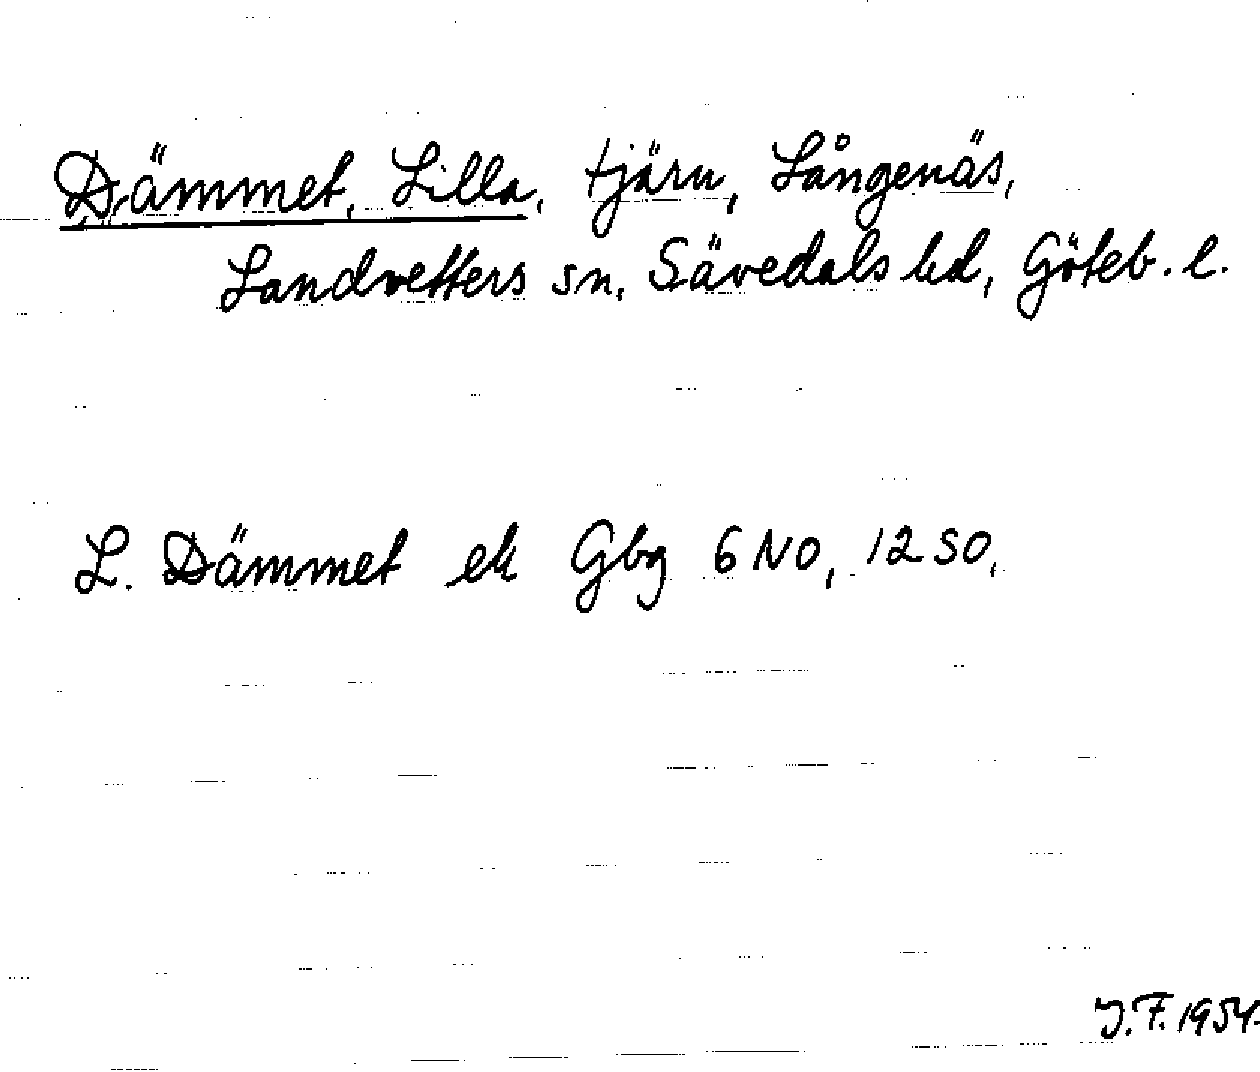 Dämmet, Lilla, tjärn, Långenäs,
Landvetters sn, Sävedals hd, Göteb. l.
L. Dämmet ek Gbg 6 NO, 12 SO,
J.F. 1954.